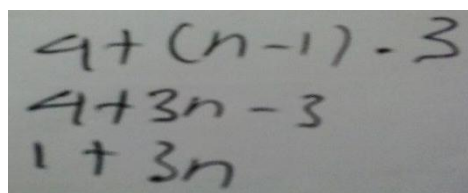 4+(n-1)·3
4+3n-3
1+3n